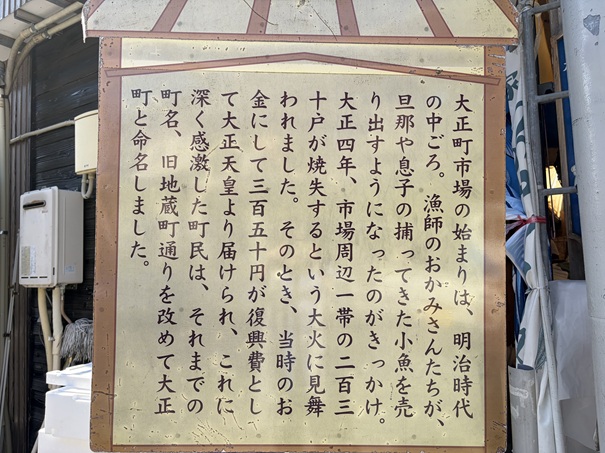 大正町市場の始まりは、明治時代
の中ごろ。 漁師のおかみさんたちが、
旦那や息子の捕ってきた小魚を売
り出すようになったのがきっかけ。
大正四年、市場周辺一帯の二百三
十戸が焼失するという大火に見舞
われました。そのとき、当時のお
金にして三百五十円が復興費とし
て大正天皇より届けられ、これに
深く感激した町民は、それまでの
町名、旧地蔵町通りを改めて大正
町と命名しました。